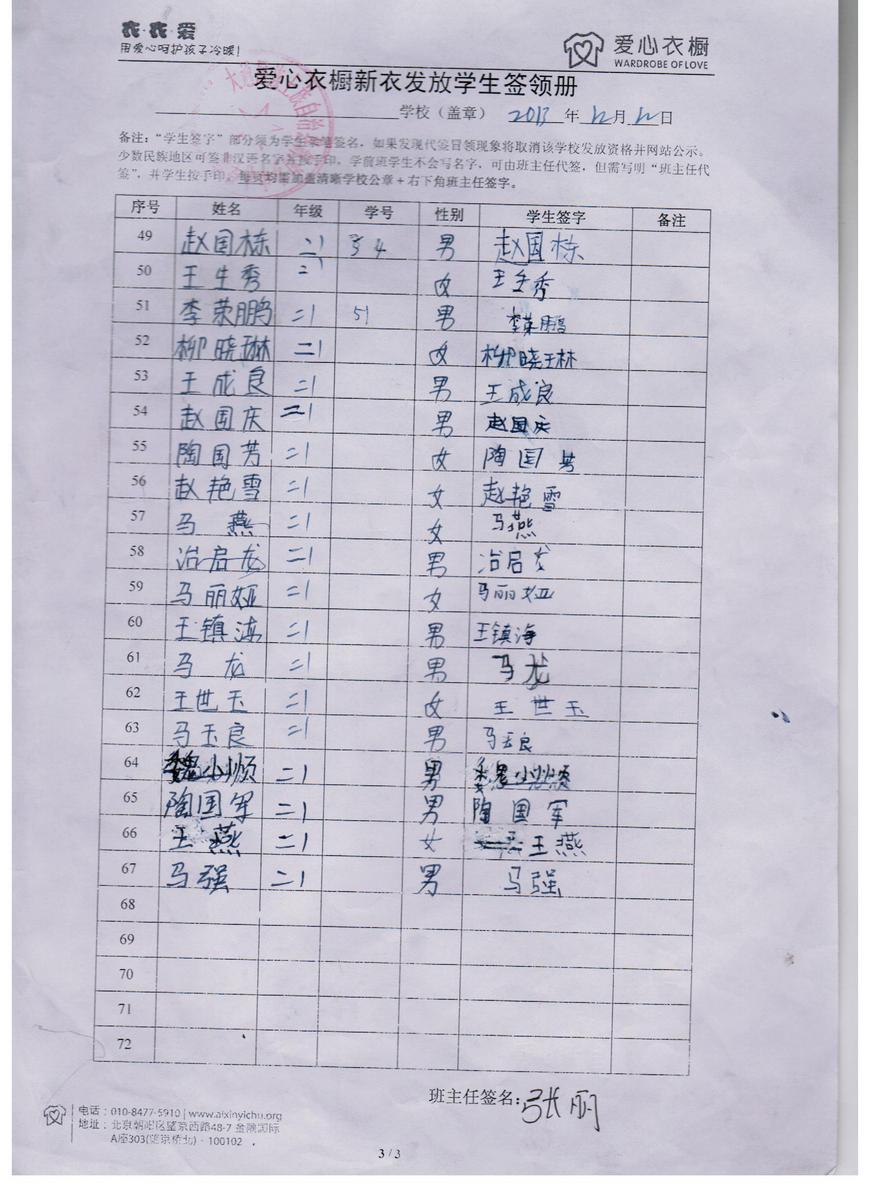 衣·衣·爱
用爱心呵护孩子冷暖!
爱心衣橱
WARDROBE OF LOVE
爱心衣橱新衣发放学生签领册
学校（盖章） 2013 年 12 月 12 日
备注：“学生签字”部分须为学生亲笔签名，如果发现代签冒领现象将取消该学校发放资格并网站公示。
少数民族地区可签非汉语名字并按手印，学前班学生不会写名字，可由班主任代签，但需写明“班主任代
签”，并学生按手印。每页均需加盖清晰学校公章+右下角班主任签字。
序号 姓名 年级 学号 性别 学生签字 备注
49 赵国栋 二1 54 男 赵国栋
50 王生秀 二1 女 王生秀
51 李荣鹏 二1 51 男 李荣鹏
52 柳晓琳 二1 女 柳晓琳
53 王成良 二1 男 王成良
54 赵国庆 二1 男 赵国庆
55 陶国芳 二1 女 陶国芳
56 赵艳雪 二1 女 赵艳雪
57 马燕 二1 女 马燕
58 冶启龙 二1 男 冶启龙
59 马丽娅 二1 女 马丽娅
60 王镇海 二1 男 王镇海
61 马龙 二1 男 马龙
62 王世玉 二1 女 王世玉
63 马玉良 二1 男 马玉良
64 魏小顺 二1 男 魏小顺
65 陶国军 二1 男 陶国军
66 王燕 二1 女 王燕
67 马强 二1 男 马强
68
69
70
71
72
班主任签名：张丽
电话：010-8477-5910 | www.aixinyichu.org
地址：北京朝阳区望京西路48-7 金融国际
A座303(望京桥北)·100102
3 / 3